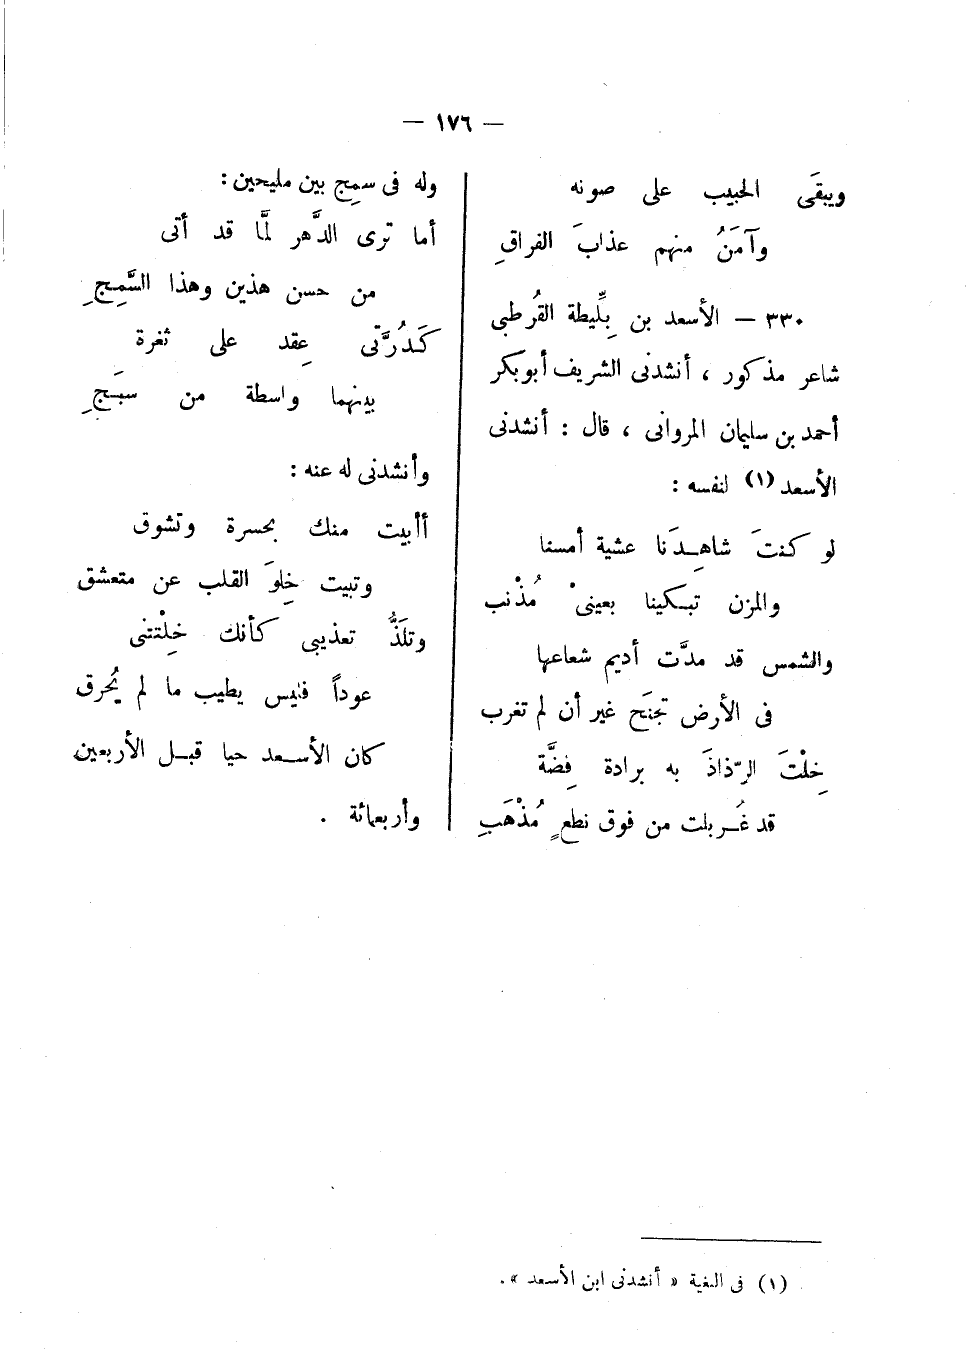 — ١٧٦ —
ويبقَى الحبيب على صونه
وآمَنُ منهم عذابَ الفراقِ
٣٣٠ — الأسعد بن بِلِّيطة القُرطبى
شاعر مذكور ، أنشدنى الشريف أبو بكر
أحمد بن سليمان المروانى ، قال : أنشدنى
الأسعد (١) لنفسه :
لو كنتَ شاهِدَنا عشية أمسنا
والمزن تبكينا بعينىْ مُذْنب
والشمس قد مدَّت أديم شعاعها
فى الأرض تجنَح غير أن لم تغرب
خِلْتَ الرّذاذَ به برادة فِضَّة
قد غُربلت من فوق نطعٍ مُذْهَبِ
وله فى سمِج بين مليحين :
أما ترى الدَّهر لمَّا قد أتى
من حسن هذين وهذا السَّمِجِ
كَدُرَّتى عِقد على ثغرة
بينهما واسطة من سبَجِ
وأنشدنى له عنه :
أأبيت منك بحسرة وتشوق
وتبيت خِلوَ القلب عن متعشق
وتلَذُّ تعذيبى كأنك خِلْتنى
عوداً فليس يطيب ما لم يُحرق
كان الأسعد حيا قبل الأربعين
وأربعمائة .
(١) فى البغية « أنشدنى ابن الأسعد » .